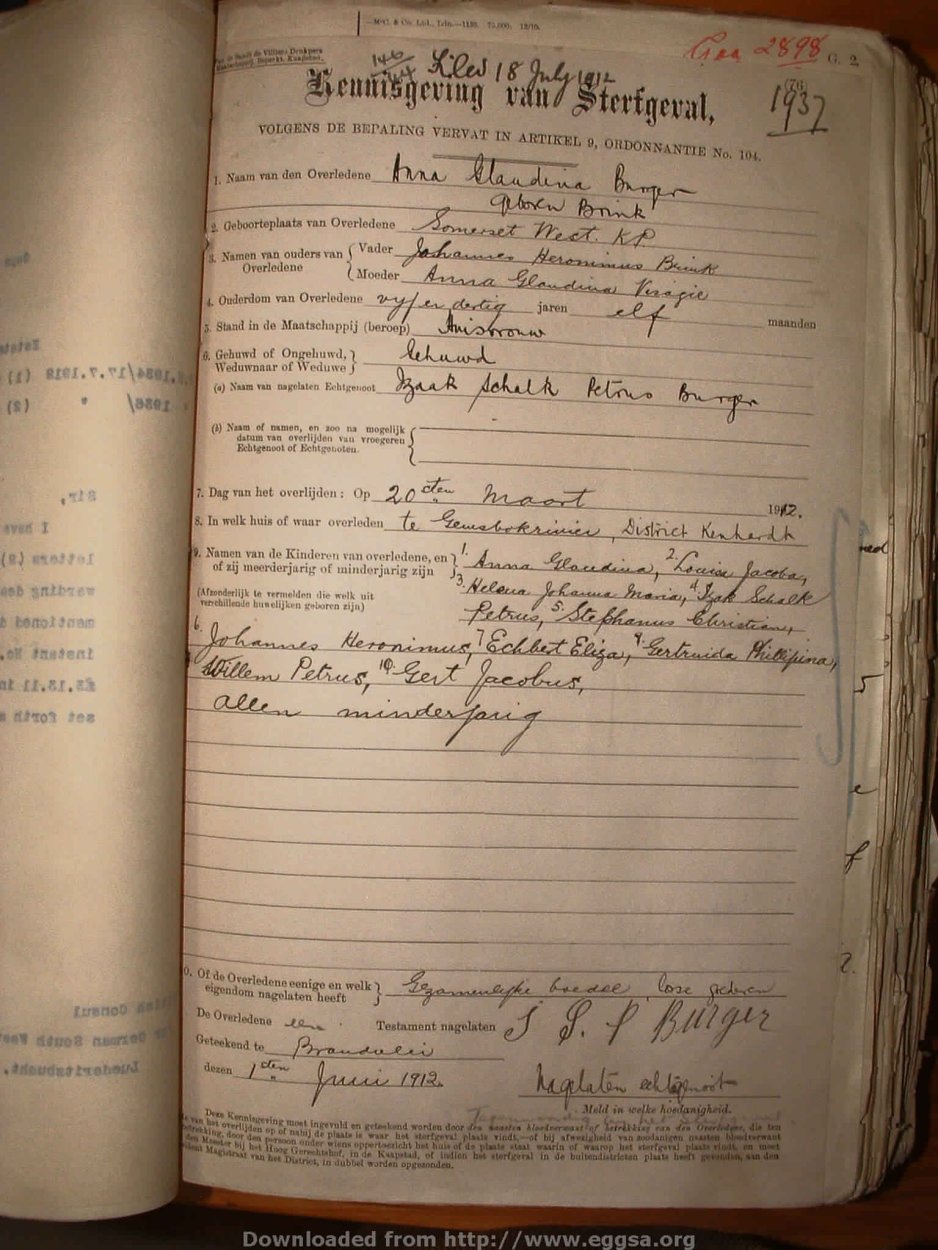 McC. & Co. Ltd., Ldn.—1130. 75,000. 12/10.
Van de Sandt de Villiers Drukpers
Maatschappij, Beperkt, Kaapstad.
146/44 Filed 18 July 1912
2898 G. 2.
(76)
1937
Kennisgeving van Sterfgeval,
VOLGENS DE BEPALING VERVAT IN ARTIKEL 9, ORDONNANTIE No. 104.
1. Naam van den Overledene Anna Glaudina Burger
geboren Brink
2. Geboorteplaats van Overledene Somerset West. KP
3. Namen van ouders van Overledene { Vader Johannes Heronimus Brink
Moeder Anna Glaudina Visagie
4. Ouderdom van Overledene vyf en dertig jaren elf maanden
5. Stand in de Maatschappij (beroep) Huisvrouw
6. Gehuwd of Ongehuwd, Weduwnaar of Weduwe } Gehuwd
(a) Naam van nagelaten Echtgenoot Izaak Schalk Petrus Burger
(b) Naam of namen, en zoo na mogelijk
datum van overlijden van vroegeren
Echtgenoot of Echtgenoten.
7. Dag van het overlijden: Op 20sten Maart 1912.
8. In welk huis of waar overleden te Gemsbokrivier, District Kenhardt
9. Namen van de Kinderen van overledene, en } 1. Anna Glaudina, 2. Louisa Jacoba,
of zij meerderjarig of minderjarig zijn
(Afzonderlijk te vermelden die welk uit 3. Helena Johanna Maria, 4 Izak Schalk
verschillende huwelijken geboren zijn)
Petrus, 5. Stephanus Christian,
6. Johannes Heronimus, 7 Echbert Eliza, 8. Gertruida Phillipina,
Willem Petrus, 10. Gert Jacobus,
allen minderjarig
0. Of de Overledene eenige en welk } Gezamenlyke boedel lose goederen
eigendom nagelaten heeft
De Overledene Testament nagelaten I S. P Burger
Geteekend te Brandvlei
dezen 1sten Juni 1912. Nagelaten echtgenoot
Meld in welke hoedanigheid.
Deze Kennisgeving moet ingevuld en geteekend worden door den naasten bloedverwant of betrekking van den Overledene, die ten
van het overlijden op of nabij de plaats is waar het sterfgeval plaats vindt,—of bij afwezigheid van zoodanigen naasten bloedverwant
betrekking, door den persoon onder wiens oppertoezicht het huis of de plaats staat waarin of waarop het sterfgeval plaats vindt, en moet
den Meester bij het Hoog Gerechtshof, in de Kaapstad, of indien het sterfgeval in de buitendistricten plaats heeft gevonden, aan den
Magistraat van het District, in dubbel worden opgezonden.
Sir,
I have
letters (2)
warding
mentioned
instant No.
£3.13.11 in
set forth
Consul
German South West
Luederitzbucht.
Downloaded from http://www.eggsa.org